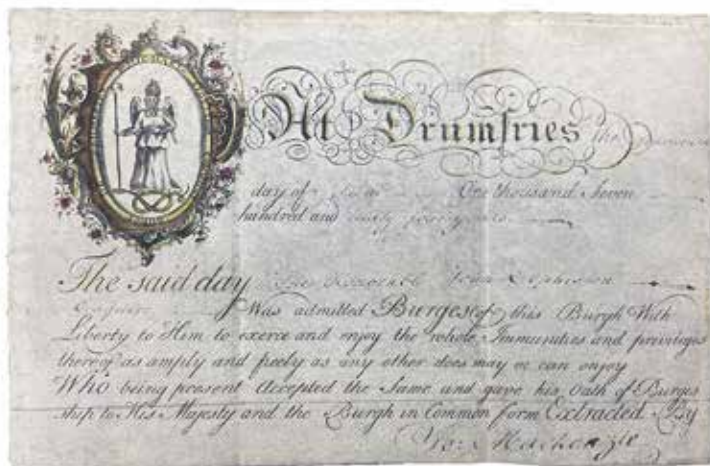 At Drumfries the
day of One thousand Seven
hundred and sixty
The said day John Stephenson
Esquire Was admitted Burges of this Burgh With
Liberty to Him to exerce and enjoy the whole Immunities and priviliges
thereof as amply and freely as any other does may or can enjoy
Who being present Accepted the Same and gave his Oath of Burges
ship to His Majesty and the Burgh in Common form Extracted By
Mackenzie